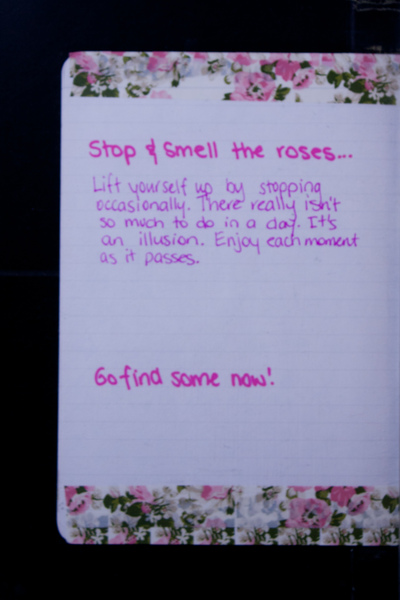 Stop & Smell the roses...
Lift yourself up by stopping
occasionally. There really isn't
so much to do in a day. It's
an illusion. Enjoy each moment
as it passes.
Go find some now!